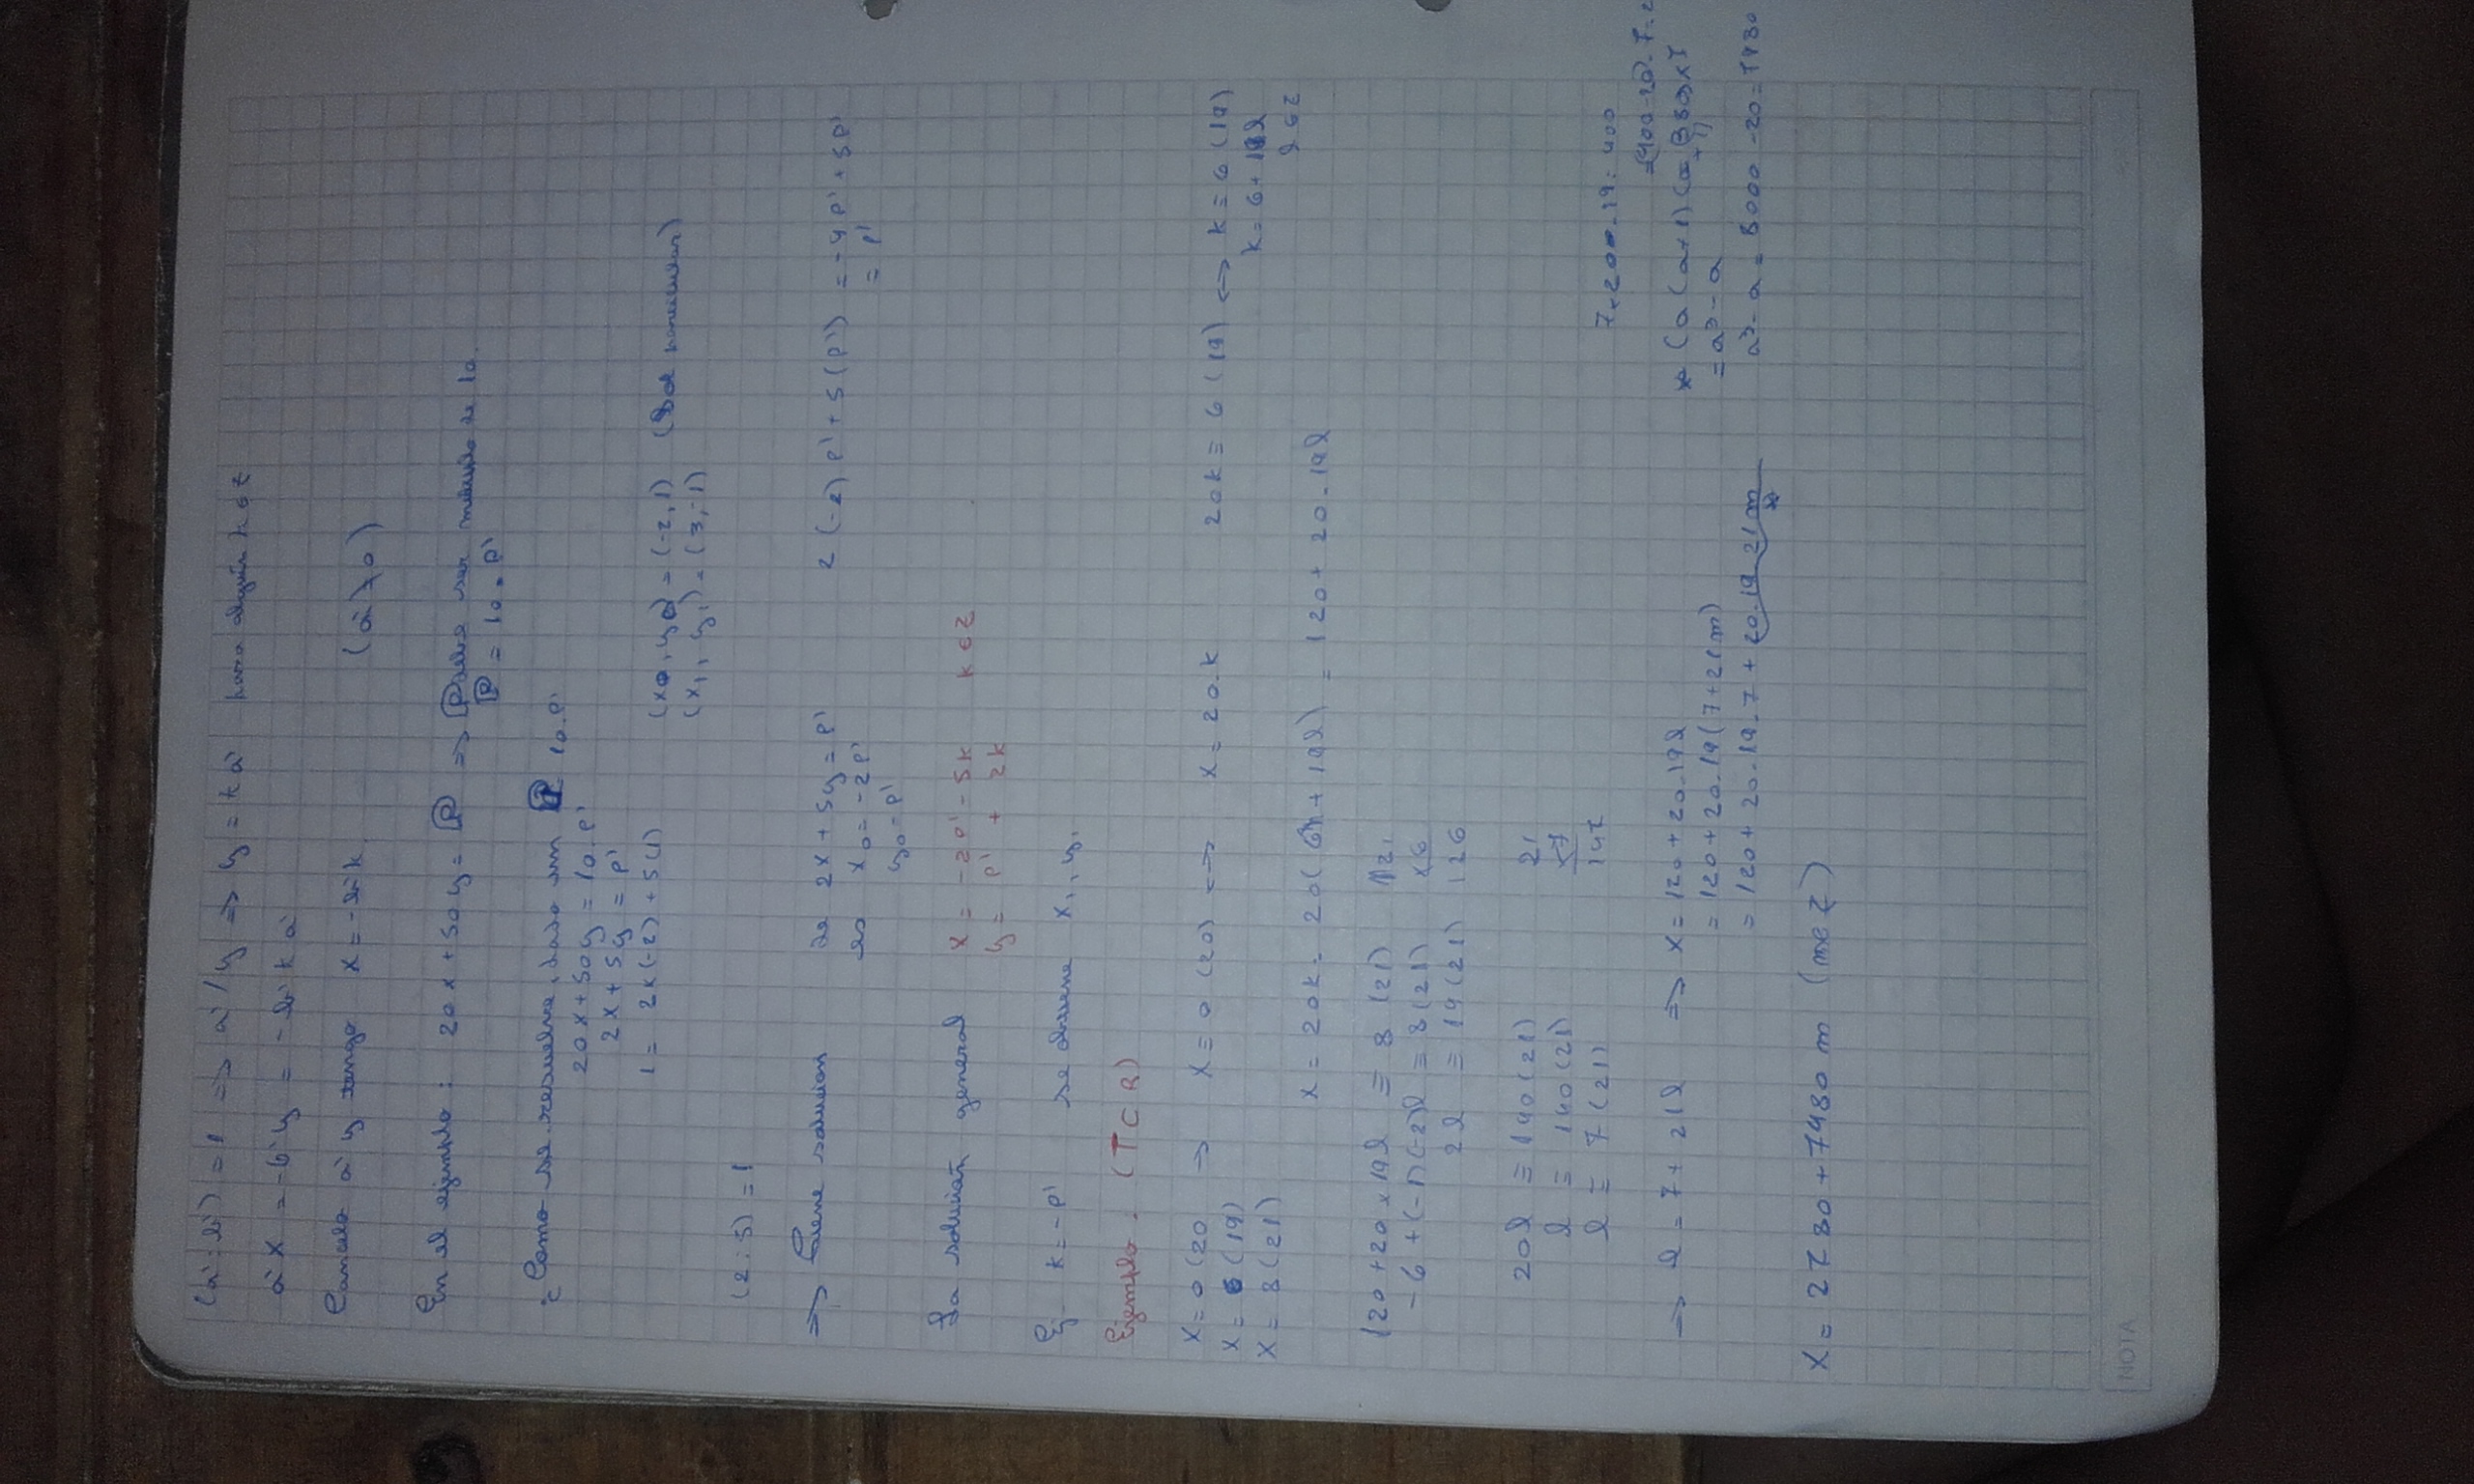 (a' : b') = 1 => a' / y => y = k a' para algún k ∈ Z
a' x = -b' y = -b' k a'
Cancelo a' y tengo x = -b' k (a' ≠ 0)
En el ejemplo : 20x + 50y = P => P debe ser múltiplo de 10.
P = 10 . P'
¿ Como se resuelve, dado un 10.P'
20x + 50y = 10.P'
2x + 5y = P'
1 = 2x(-2) + 5(1) (x0, y0) = (-2, 1) (Sol particular)
(x1, y1) = (3, -1)
(2 : 5) = 1
=> Tiene solucion de 2x + 5y = P' 2(-2) P' + 5(P') = -4P' + 5P'
es x0 = -2P' = P'
y0 = P'
La solución general x = -2P' - 5k k ∈ Z
y = P' + 2k
Ej. k = -P' se obtiene x1, y1
Ejemplo . (TCR)
x = 0 (20 → x ≡ 0 (20) <-> x = 20.k 20k ≡ 6 (19) <-> k ≡ 6 (19)
x = 6 (19) k = 6 + 19l
x = 8 (21) l ∈ Z
x = 20k = 20(6 + 19l) = 120 + 20.19l
120 + 20 x 19l ≡ 8 (21) 21
-6 + (-1)(-2)l ≡ 8 (21) x6
2l ≡ 14 (21) 126
20l ≡ 140 (21) 21
l ≡ 140 (21) x7
l ≡ 7 (21) 147
7.20.19 = 400
=> l = 7 + 21l => x = 120 + 20.19l
= 120 + 20.19(7 + 21m)
= a³ - a
= 120 + 20.19.7 + 20.19.21m
a³ - a = 8000 - 20 = 7980
x = 2780 + 7980 m (m ∈ Z)
NOTA